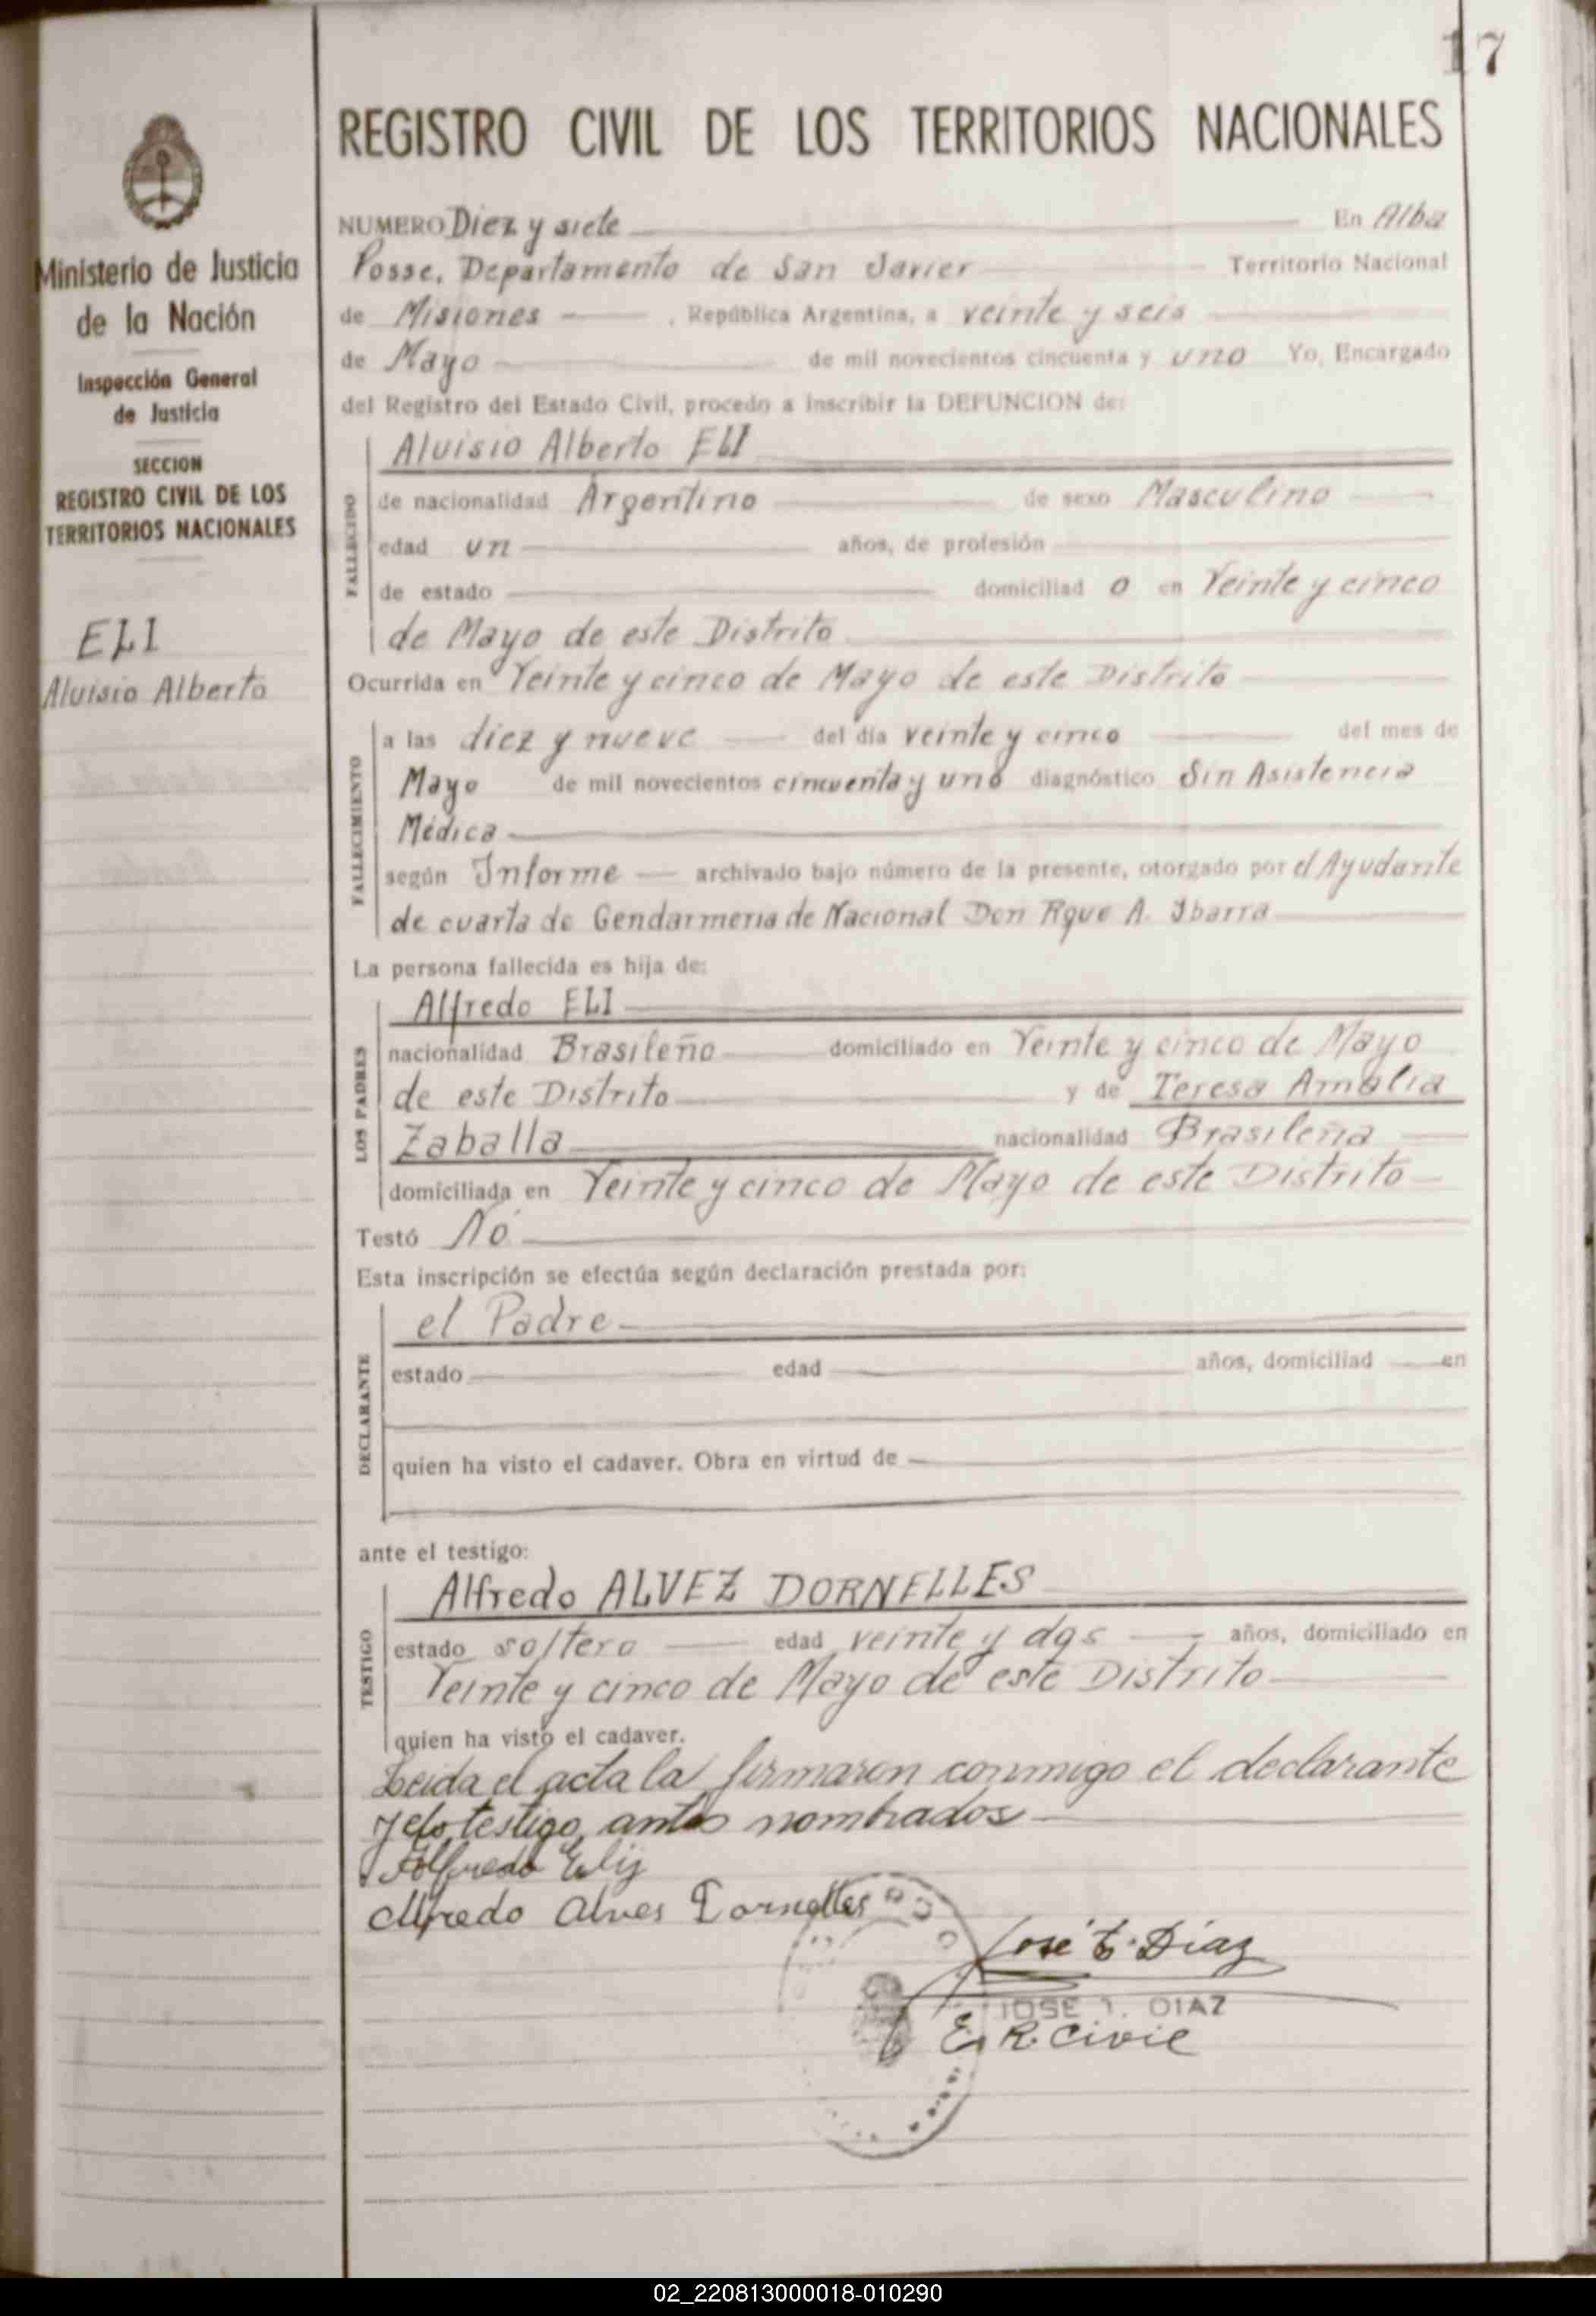 17
REGISTRO CIVIL DE LOS TERRITORIOS NACIONALES
Ministerio de Justicia
de la Nación
Inspección General
de Justicia
SECCION
REGISTRO CIVIL DE LOS
TERRITORIOS NACIONALES
ELI
Aluisio Alberto
NUMERO Diez y siete En Alba
Posse, Departamento de San Javier Territorio Nacional
de Misiones , República Argentina, a veinte y seis
de Mayo de mil novecientos cincuenta y uno Yo, Encargado
del Registro del Estado Civil, procedo a inscribir la DEFUNCION de:
FALLECIDO
Aluisio Alberto ELI
de nacionalidad Argentino de sexo Masculino
edad un años, de profesión
de estado domiciliad o en Veinte y cinco
de Mayo de este Distrito
Ocurrida en Veinte y cinco de Mayo de este Distrito
FALLECIMIENTO
a las diez y nueve del día veinte y cinco del mes de
Mayo de mil novecientos cincuenta y uno diagnóstico Sin Asistencia
Médica
según Informe archivado bajo número de la presente, otorgado por el Ayudante
de cuarta de Gendarmeria de Nacional Don Rque A. Ibarra
La persona fallecida es hija de:
LOS PADRES
Alfredo ELI
nacionalidad Brasileño domiciliado en Veinte y cinco de Mayo
de este Distrito y de Teresa Amalia
Zaballa nacionalidad Brasileña
domiciliada en Veinte y cinco de Mayo de este Distrito
Testó No
Esta inscripción se efectúa según declaración prestada por:
DECLARANTE
el Padre
estado edad años, domiciliad en
quien ha visto el cadaver. Obra en virtud de
ante el testigo:
TESTIGO
Alfredo ALVEZ DORNELLES
estado soltero edad veinte y dos años, domiciliado en
Veinte y cinco de Mayo de este Distrito
quien ha visto el cadaver.
Leida el acta la firmaron conmigo el declarante
y el testigo antes nombrados
Alfredo Elij
Alfredo Alves Dornelles
José E. Díaz
JOSE DIAZ
E. R. Civil
02_220813000018-010290